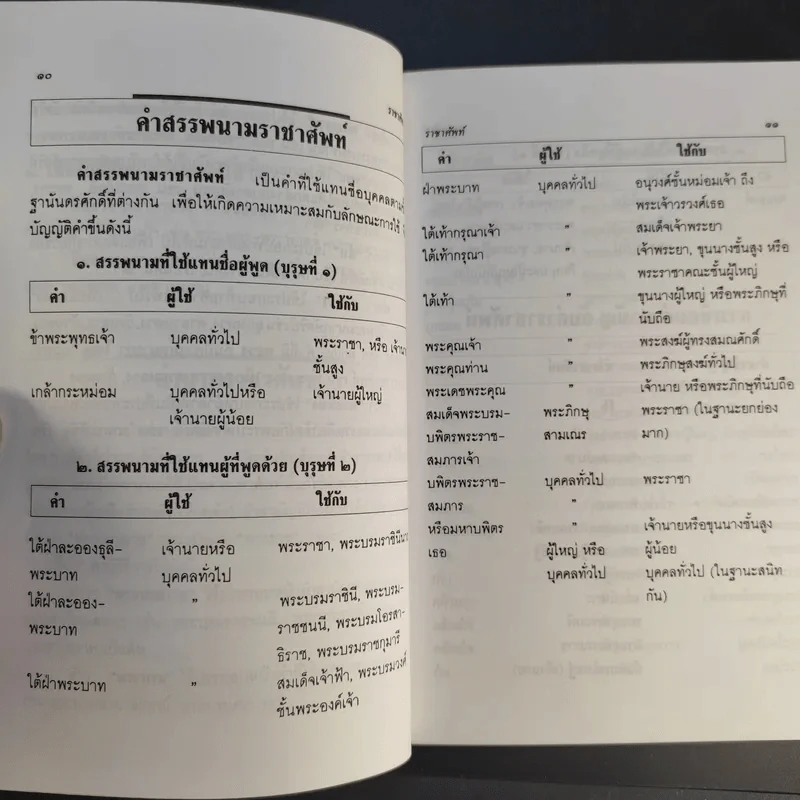 ๑๐
คำสรรพนามราชาศัพท์
คำสรรพนามราชาศัพท์ เป็นคำที่ใช้แทนชื่อบุคคลตาม
ฐานันดรศักดิ์ที่ต่างกัน เพื่อให้เกิดความเหมาะสมกับลักษณะการใช้
บัญญัติคำขึ้นดังนี้
๑. สรรพนามที่ใช้แทนชื่อผู้พูด (บุรุษที่ ๑)
คำ ผู้ใช้ ใช้กับ
ข้าพระพุทธเจ้า บุคคลทั่วไป พระราชา, หรือ เจ้านาย
ชั้นสูง
เกล้ากระหม่อม บุคคลทั่วไปหรือ เจ้านายผู้ใหญ่
เจ้านายผู้น้อย
๒. สรรพนามที่ใช้แทนผู้ที่พูดด้วย (บุรุษที่ ๒)
คำ ผู้ใช้ ใช้กับ
ใต้ฝ่าละอองธุลี- เจ้านายหรือ พระราชา, พระบรมราชินีนาถ
พระบาท บุคคลทั่วไป
ใต้ฝ่าละออง- " พระบรมราชินี, พระบรม-
พระบาท ราชชนนี, พระบรมโอรสา-
ธิราช, พระบรมราชกุมารี
ใต้ฝ่าพระบาท " สมเด็จเจ้าฟ้า, พระบรมวงศ์
ชั้นพระองค์เจ้า
ราชาศัพท์ ๑๑
คำ ผู้ใช้ ใช้กับ
ฝ่าพระบาท บุคคลทั่วไป อนุวงศ์ชั้นหม่อมเจ้า ถึง
พระเจ้าวรวงศ์เธอ
ใต้เท้ากรุณาเจ้า " สมเด็จเจ้าพระยา
ใต้เท้ากรุณา " เจ้าพระยา, ขุนนางชั้นสูง หรือ
พระราชาคณะชั้นผู้ใหญ่
ใต้เท้า " ขุนนางผู้ใหญ่ หรือพระภิกษุที่
นับถือ
พระคุณเจ้า " พระสงฆ์ผู้ทรงสมณศักดิ์
พระคุณท่าน " พระภิกษุสงฆ์ทั่วไป
พระเดชพระคุณ " เจ้านาย หรือพระภิกษุที่นับถือ
สมเด็จพระบรม- พระภิกษุ พระราชา (ในฐานะยกย่อง
บพิตรพระราช- สามเณร มาก)
สมภารเจ้า
บพิตรพระราช- บุคคลทั่วไป พระราชา
สมภาร "
หรือมหาบพิตร " เจ้านายหรือขุนนางชั้นสูง
เธอ ผู้ใหญ่ หรือ ผู้น้อย
บุคคลทั่วไป บุคคลทั่วไป (ในฐานะสนิท
กัน)